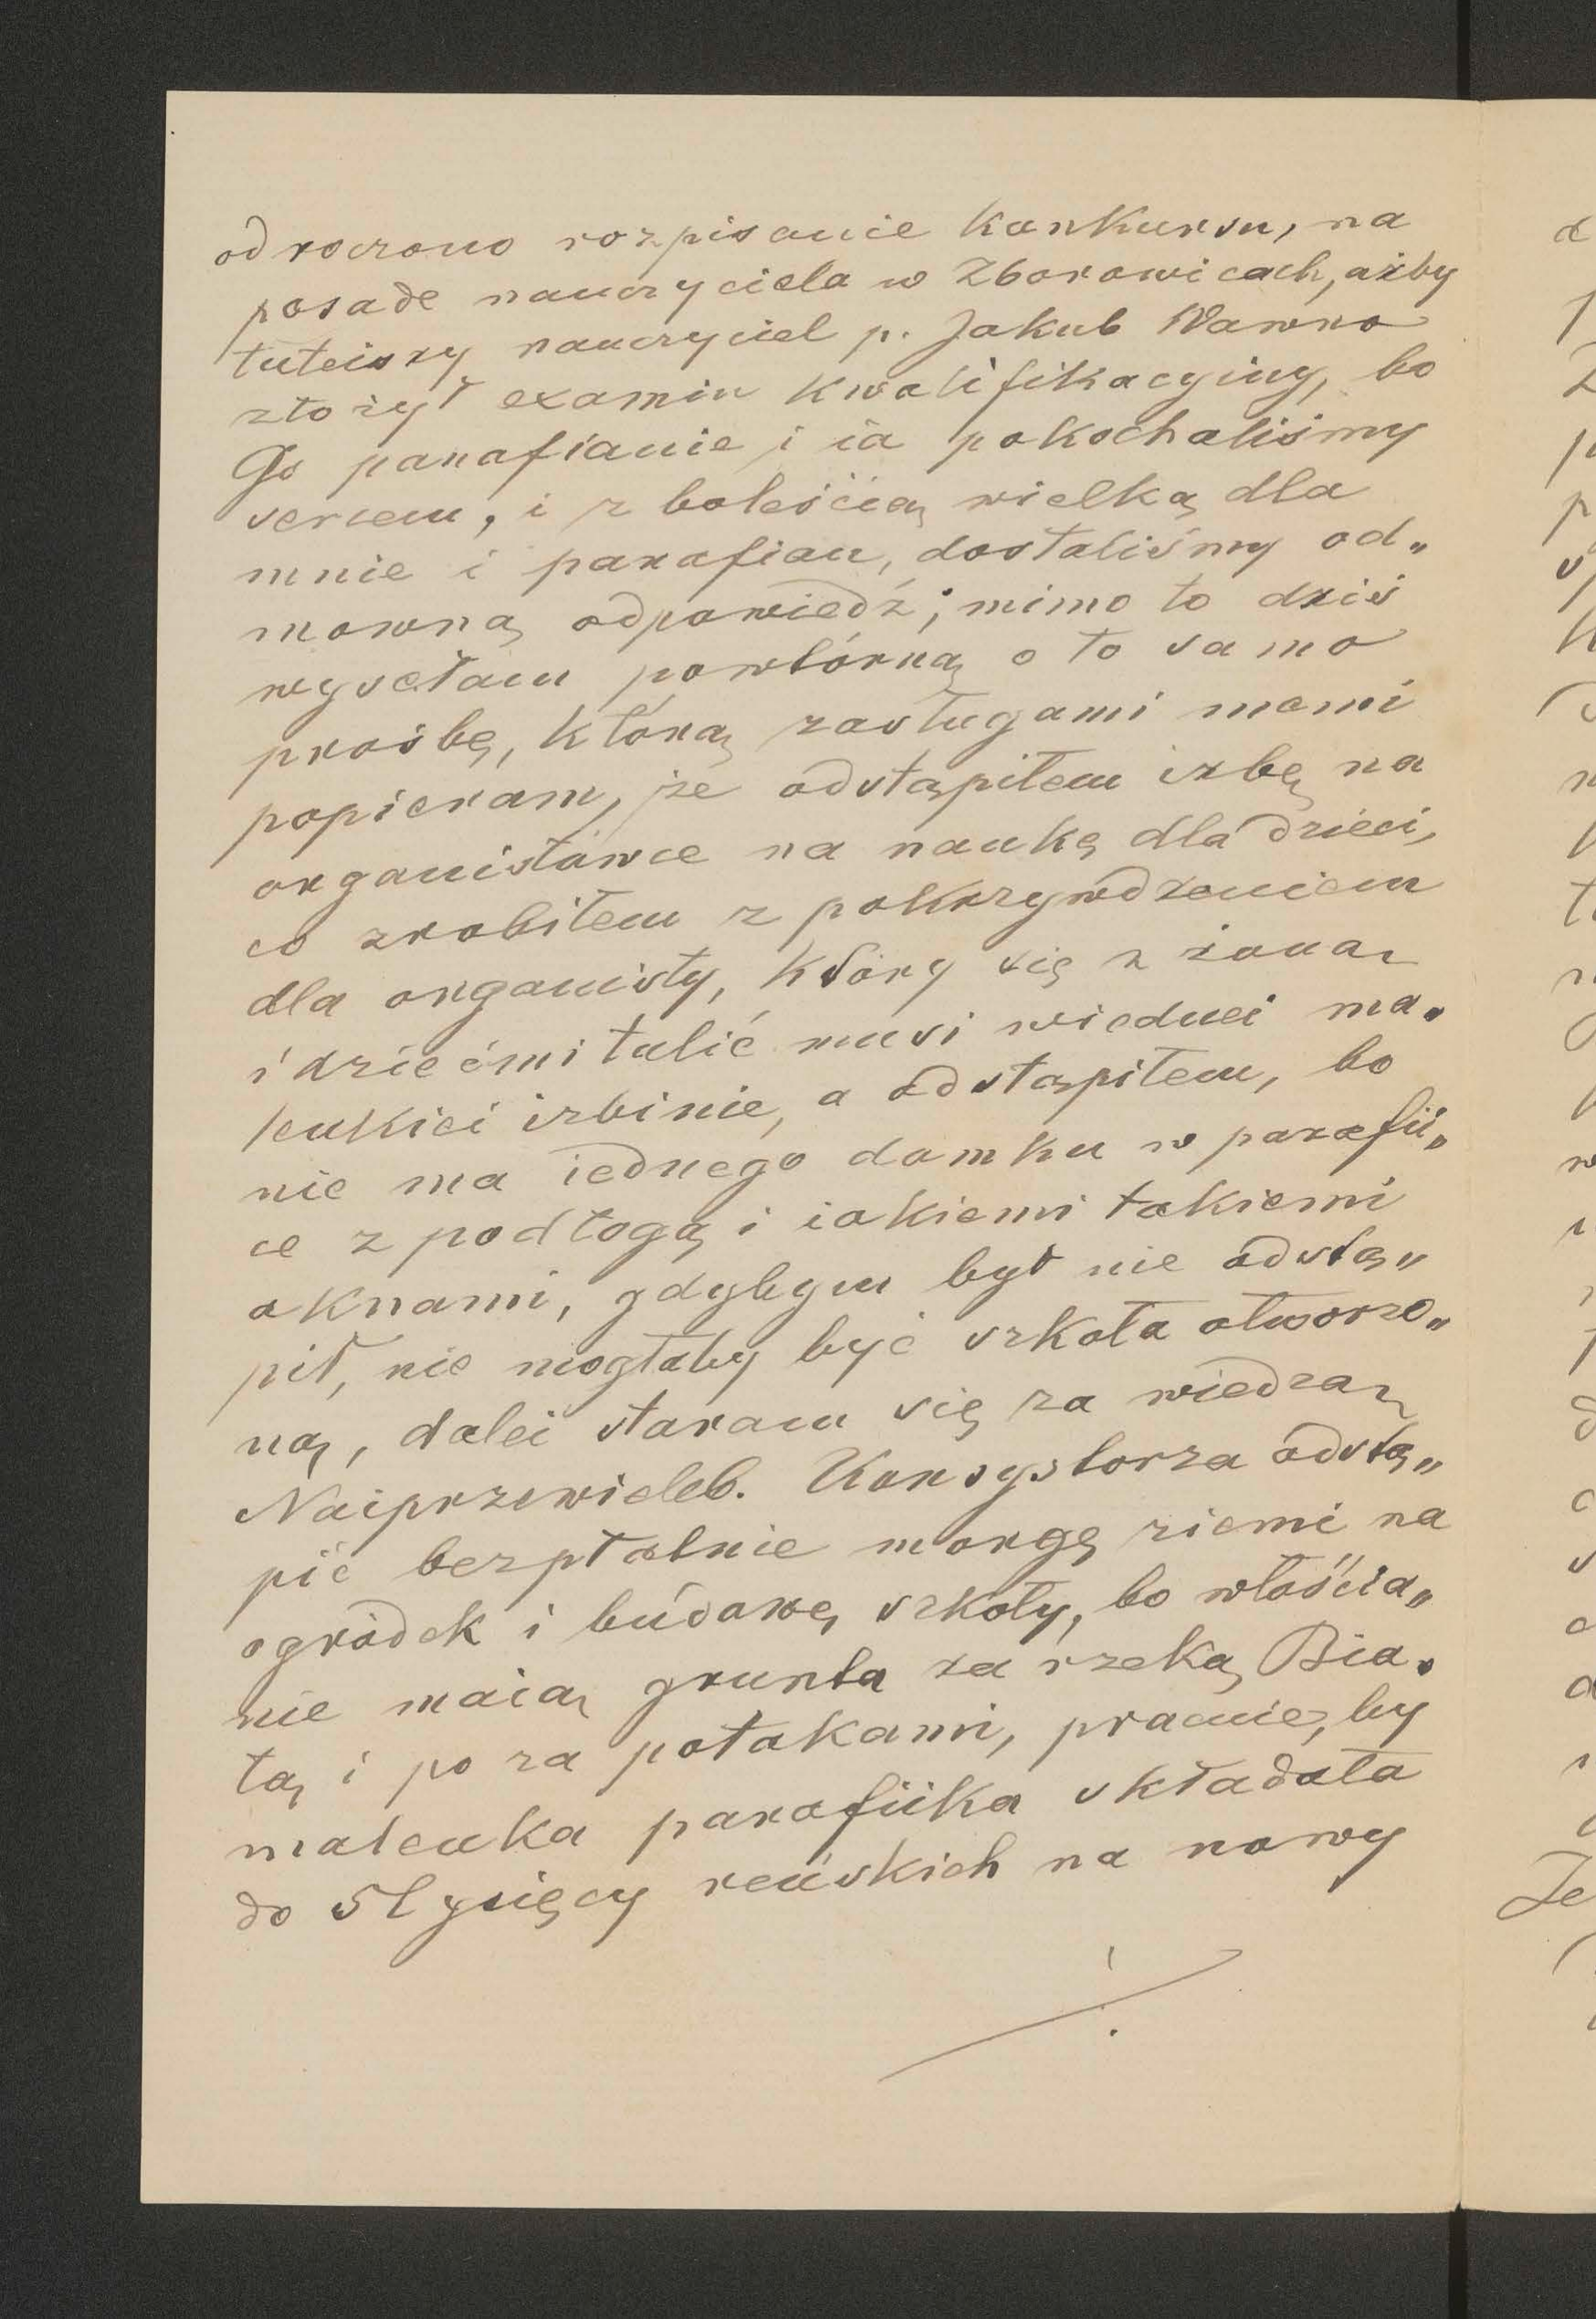 odroczono rozpisanie Konkursu, na
posade nauczyciela w Zborowicach, ażby
tuteiszy nauczyciel p. Jakub Wawno
złożył examin Kwalifikacyiny, bo
Go parafianie i ia pokochaliśmy
sercem, i z boleścią wielką dla
mnie i parafian, dostaliśmy od„
mowną odpowiedź; mimo to dziś
wysełam powtórną o to samo
prośbę, którą zasługami memi
popieram, że odstąpiłem izbę na
organistówce na naukę dla dzieci,
co zrobiłem z pokrzywdzeniem
dla organisty, który się z żoną
i dziećmi tulić musi w iednei ma„
leńkiei izbinie, a odstąpiłem, bo
nie ma iednego domku w parafii„
ce z podłogą i iakiemi takiemi
oknami, gdybym był nie odstą„
pił, nie mogłaby być szkoła otworzo„
ną, dalei staram się za wiedzą
Naiprzewieleb. Konsystorza odstą„
pić bezpłatnie morgę ziemi na
ogródek i budowę szkoły, bo włościa„
nie maią grunta za rzeką Bia„
łą i po za potokami, pragnię, by
maleńka parafiika składała
do 5 tysięcy reńskich na nowy